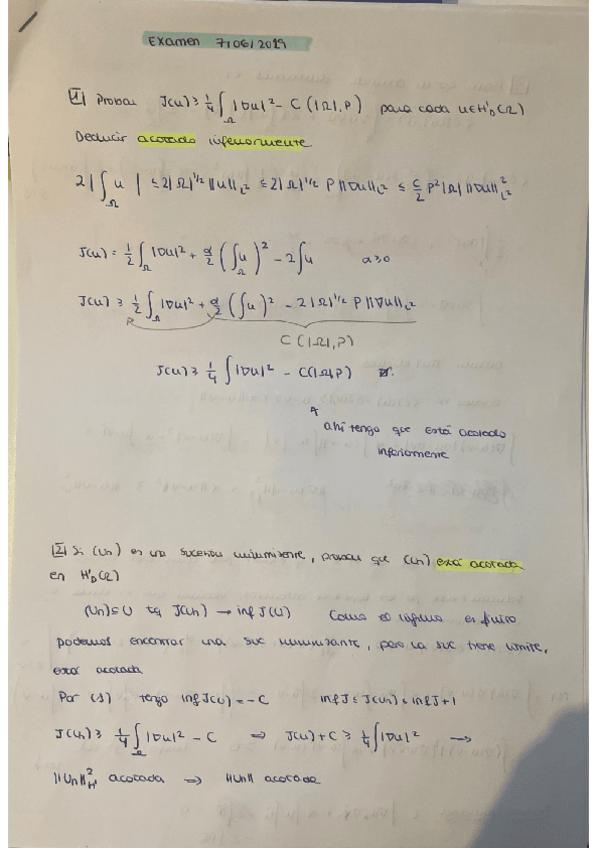 Examen 7/06/2019
1) Probar J(u) ≥ 1/4 ∫_Ω |∇u|² - C(|Ω|, P) para cada u ∈ H¹₀(Ω)
Deducir acotado inferiormente
2|∫_Ω u| ≤ 2|Ω|^{1/2} ||u||_{L²} ≤ 2|Ω|^{1/2} P ||∇u||_{L²} ≤ C/2 P² |Ω| ||∇u||²_{L²}
J(u) = 1/2 ∫_Ω |∇u|² + α/2 (∫_Ω u)² - 2∫u α≥0
J(u) ≥ 1/2 ∫_Ω |∇u|² + α/2 (∫u)² - 2|Ω|^{1/2} P ||∇u||_{L²}
C(|Ω|, P)
J(u) ≥ 1/4 ∫ |∇u|² - C(|Ω|, P)
ahí tengo que está acotado
inferiormente
2) Si (un) es una sucesión minimizante, probar que (un) está acotada
en H¹₀(Ω)
(un) ⊆ U tq J(un) → inf J(u) Como el ínfimo es finito
podemos encontrar una suc minimizante, pero la suc tiene límite,
está acotada
Por (1) tengo inf J(u) = -C inf J ≤ J(un) ≤ inf J + 1
J(un) ≥ 1/4 ∫_Ω |∇u|² - C ⇒ J(u) + C ≥ 1/4 ∫ |∇u|² →
||un||²_{H¹} acotada ⇒ ||un|| acotada